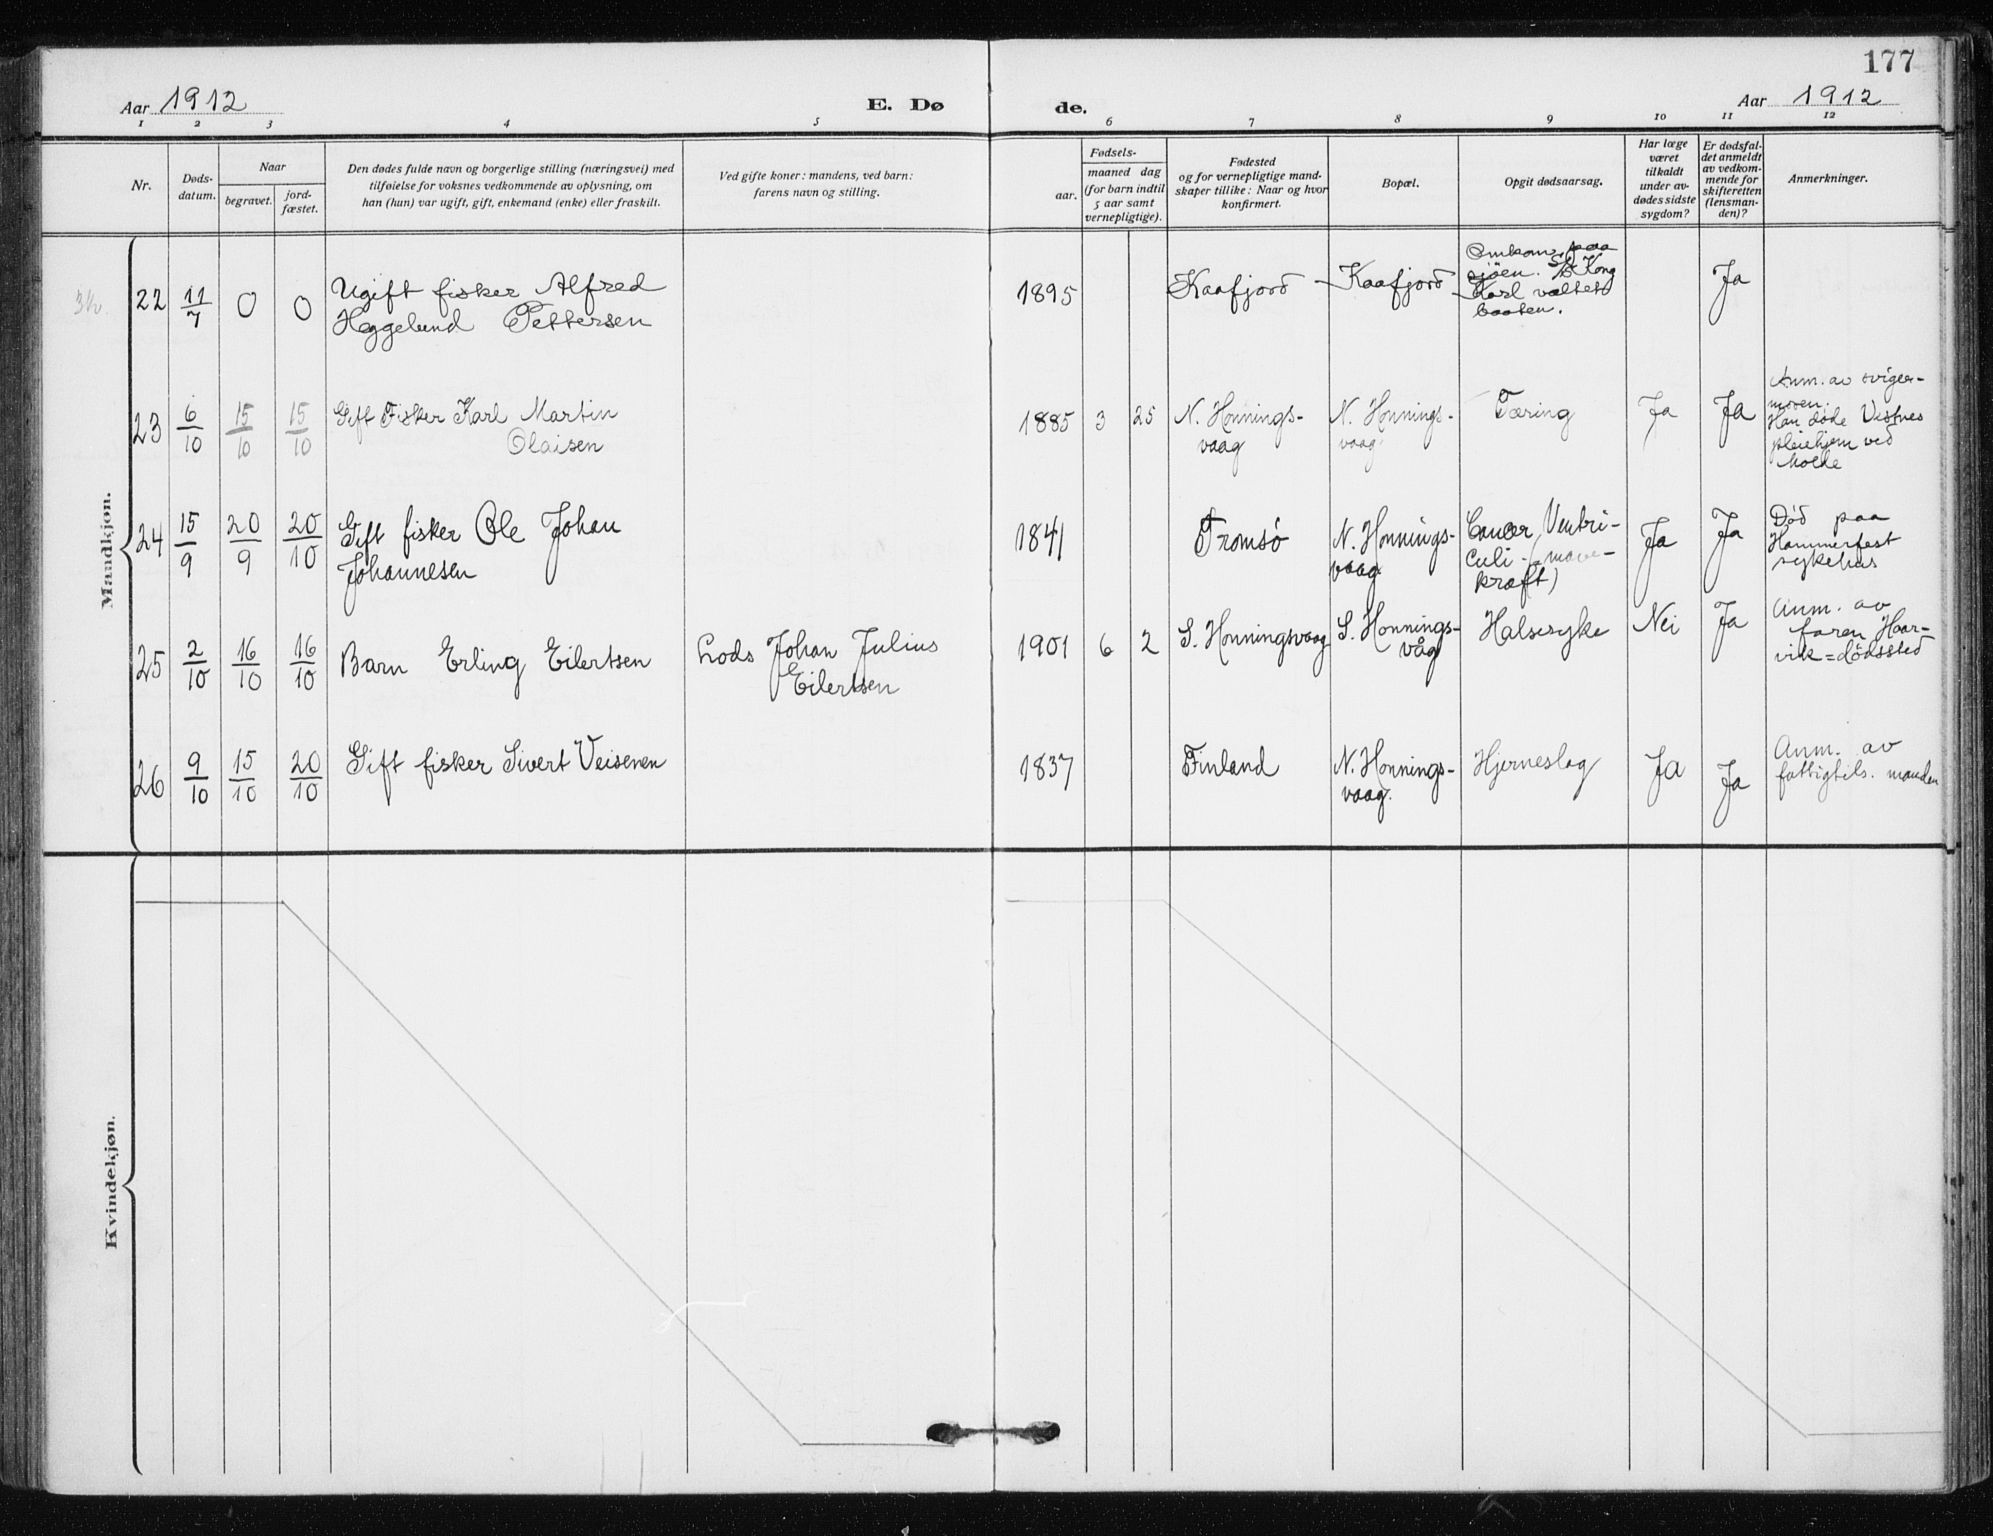 177
Aar 1912 E. Dø de. Aar 1912
1 2 3 4 5 6 7 8 9 10 11 12
Nr.
Døds-
datum.
Naar
begravet.
jord-
fæstet.
Den dødes fulde navn og borgerlige stilling (næringsvei) med
tilføielse for voksnes vedkommende av oplysning, om
han (hun) var ugift, gift, enkemand (enke) eller fraskilt.
Ved gifte koner: mandens, ved barn:
farens navn og stilling.
Fødsels-
aar.
maaned dag
(for barn indtil
5 aar samt
vernepligtige).
Fødested
og for vernepligtige mand-
skaper tillike: Naar og hvor
konfirmert.
Bopæl.
Opgit dødsaarsag.
Har læge
været
tilkaldt
under av-
dødes sidste
sygdom?
Er dødsfal-
det anmeldt
av vedkom-
mende for
skifteretten
(lensman-
den)?
Anmerkninger.
Mandkjøn.
22
11/7
0
0
Ugift fisker Alfred
Heggelund Pettersen
1895
Kaafjord
Kaafjord
Omkom paa
sjøen. S/S Kong
Karl væltet
baaten.
Ja
23
6/10
15/10
15/10
Gift Fisker Karl Martin
Olaisen
1885
3
25
N. Honnings-
vaag
N. Honnings-
vaag
Tæring
Ja
Ja
Anm. av sviger-
moren.
Han døde Vestnes
pleiehjem ved
Molde
24
15/9
20/9
20/10
Gift fisker Ole Johan
Johannesen
1841
Tromsø
N. Honnings-
vaag
Cancer Ventri-
culi (mave-
kræft)
Ja
Ja
Død paa
Hammerfest
sykehus
25
2/10
16/10
16/10
Barn Erling Eilertsen
Lods Johan Julius
Eilertsen
1901
6
2
S. Honningsvaag
S. Honnings-
våg
Halsesyke
Nei
Ja
Anm. av
faren Haar-
vik = dødssted
26
9/10
15/10
20/10
Gift fisker Sivert Veisenen
1837
Finland
N. Honnings-
vaag.
Hjerneslag
Ja
Ja
Anm. av
fattigtils. manden
Kvindekjøn.